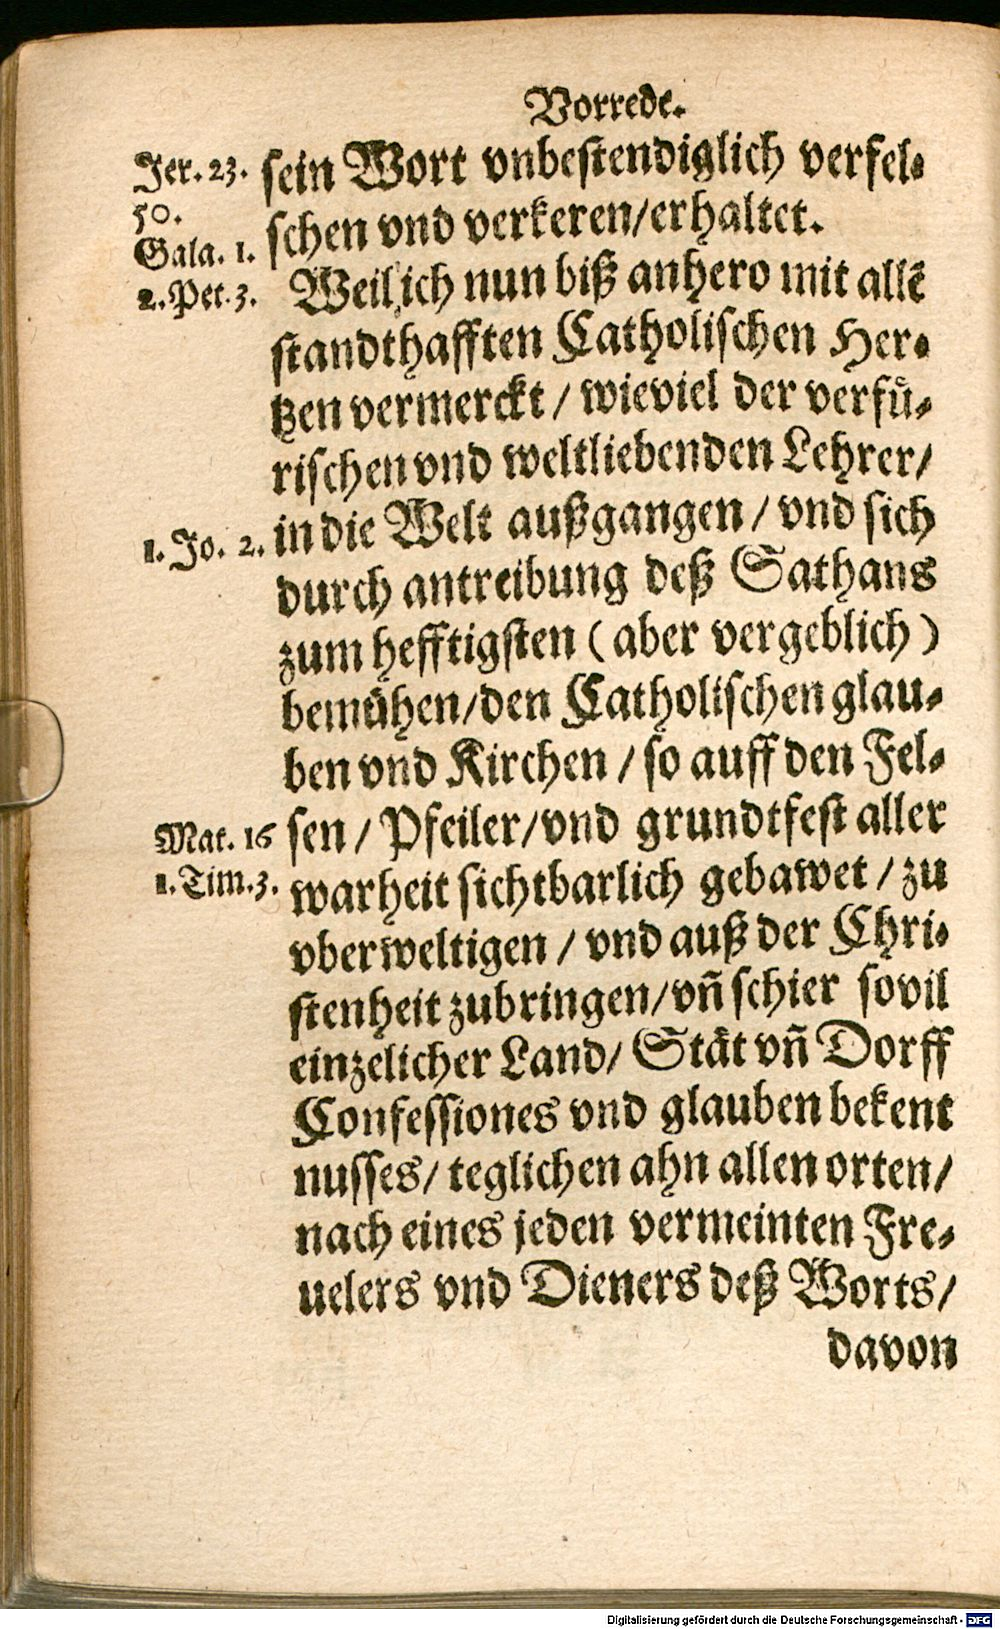 Vorrede.
Jer. 23.
50.
Gala. 1.
2. Pet. 3.
sein Wort vnbestendiglich verfel⸗
schen vnd verkeren/erhaltet.
Weil ich nun biß anhero mit allẽ
standthafften Catholischen Her⸗
tzen vermerckt / wieviel der verfuͤ⸗
rischen vnd weltliebenden Lehrer/
1. Jo. 2.
in die Welt außgangen / vnd sich
durch antreibung deß Sathans
zum hefftigsten ( aber vergeblich )
bemuͤhen/den Catholischen glau⸗
ben vnd Kirchen / so auff den Fel⸗
Mat. 16
1. Tim. 3.
sen / Pfeiler/vnd grundtfest aller
warheit sichtbarlich gebawet / zu
vberweltigen / vnd auß der Chri⸗
stenheit zubringen/vñ schier sovil
einzelicher Land/ Staͤt vñ Dorff
Confessiones vnd glauben bekent
nusses/ teglichen ahn allen orten/
nach eines jeden vermeinten Fre⸗
uelers vnd Dieners deß Worts/
davon
Digitalisierung gefördert durch die Deutsche Forschungsgemeinschaft - DFG